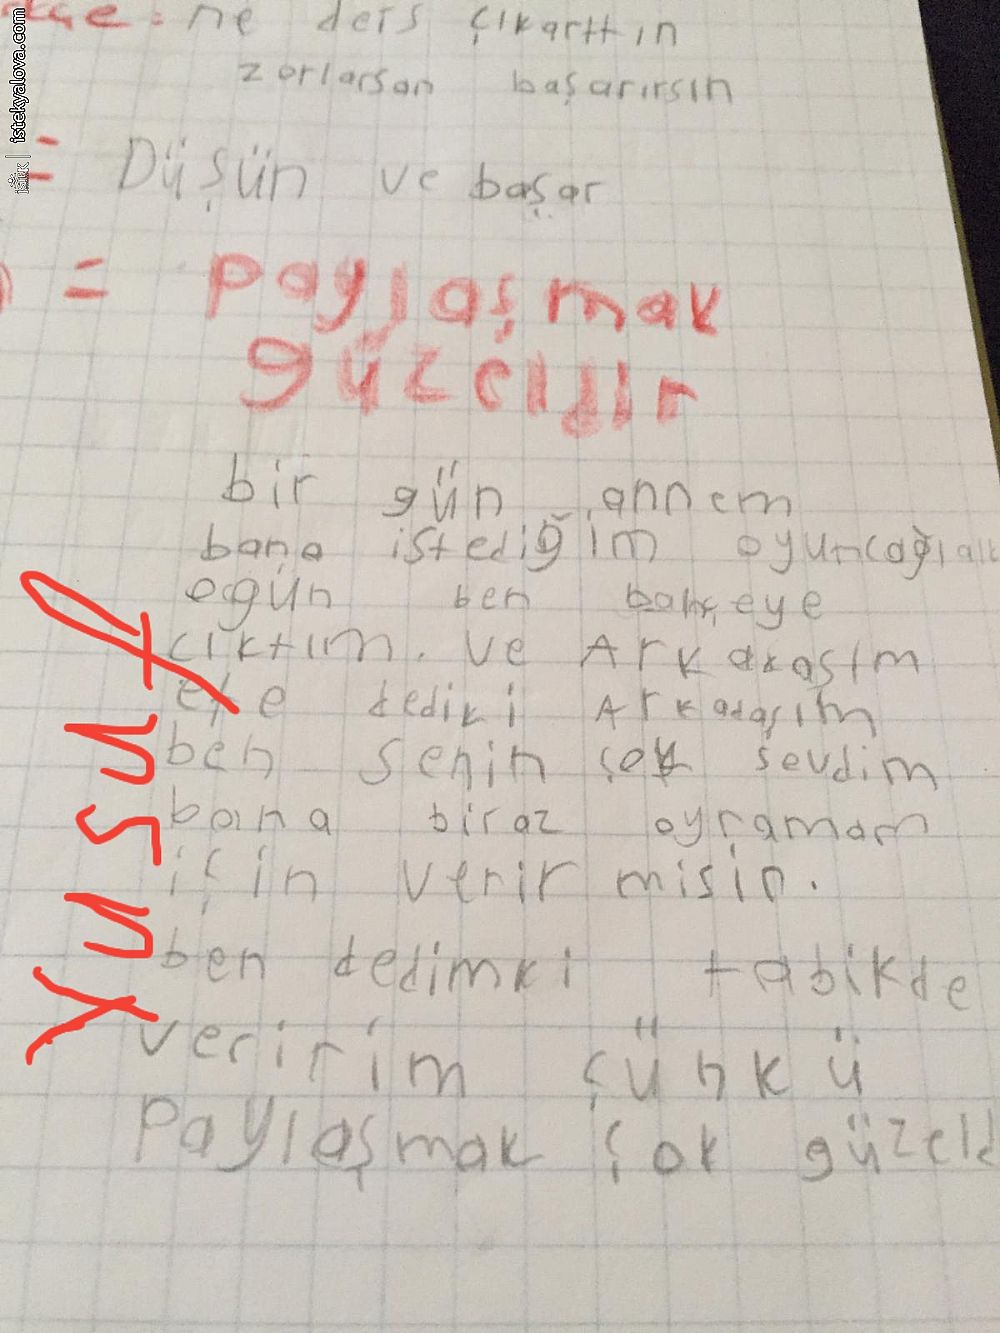 ne ders çıkarttın
zorlarsan başarırsın
= Düşün ve başar
= paylaşmak
güzeldir
bir gün annem
bana istediğim oyuncağı
ogün ben bahçeye
çıktım. ve Arkakaşım
efe dediki Arkadaşım
ben senin çok sevdim
bana biraz oynamam
için verir misin.
ben dedimki tabikde
veririm çünkü
Paylaşmak çok güzeld
Yusuf
istek | istekyalova.com